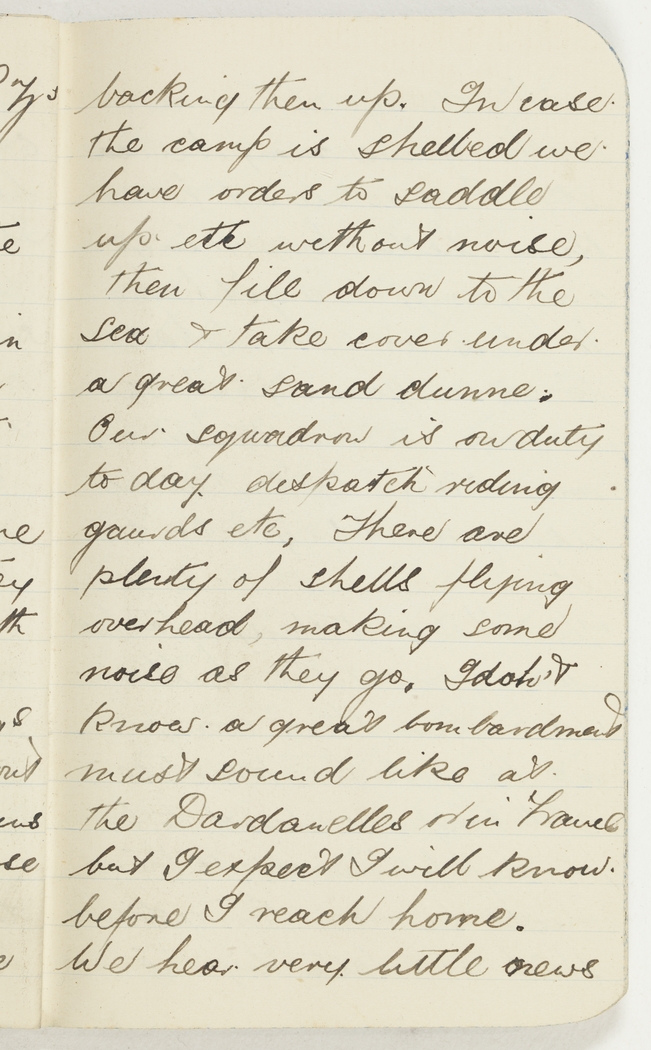 backing then up. In case
the camp is shelled we
have orders to saddle
up etc without noise,
then fill down to the
sea & take cover under
a great sand dunne.
Our squadron is on duty
to day despatch riding
gaurds etc, There are
plenty of shells flying
overhead, making some
noise as they go. I don't
know a great bombardment
must sound like at
the Dardanelles or in France
but I expect I will know
before I reach home.
We hear very little news